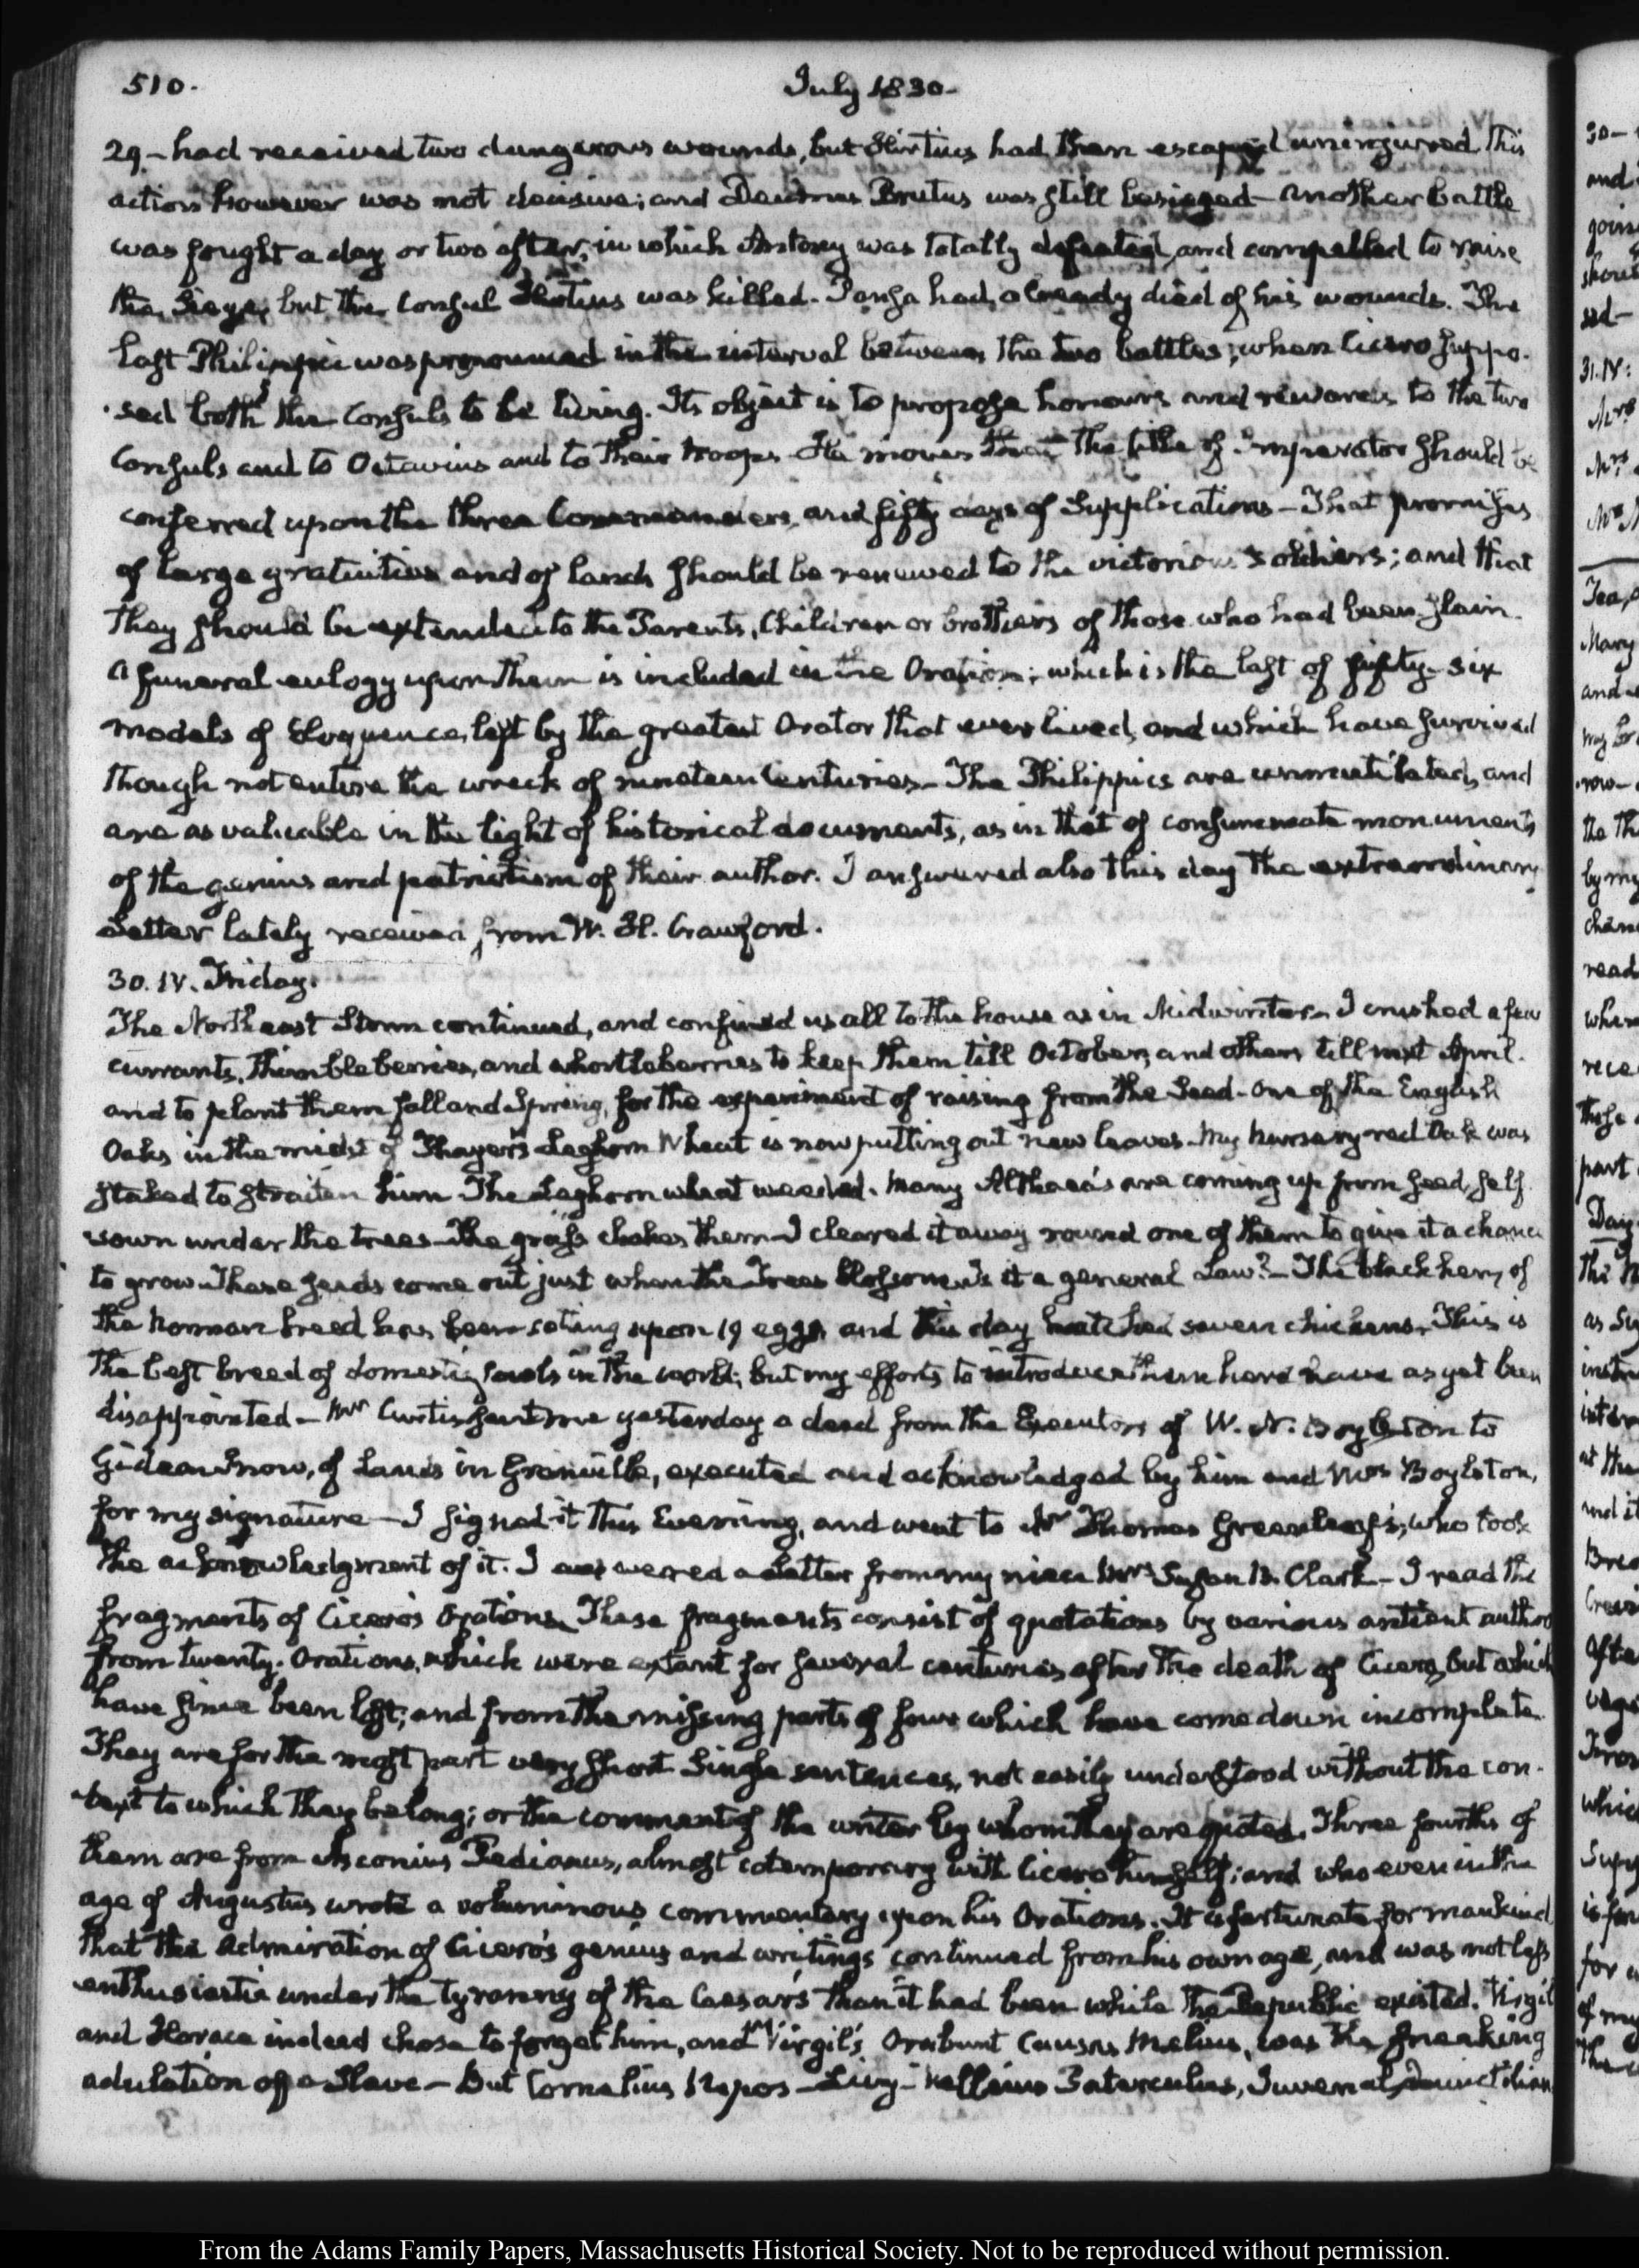 510.
July 1830.
29 – had received two dangerous wounds, but Hirtius had then escaped uninjured. This
action however was not decisive; and Decimus Brutus was still besieged – another battle
was fought a day or two after, in which Antony was totally defeated, and compelled to raise
the Siege; but the Consul Hirtius was killed. Pansa had already died of his wounds. The
last Philippic was pronounced in the interval between the two battles, when Cicero suppo-
sed both the Consuls to be living. Its object is to propose honours and rewards to the two
Consuls and to Octavius and to their troops. He moves that the title of Imperator should be
conferred upon the three Commanders, and fifty days of Supplications – That promises
of large gratuities and of lands should be renewed to the victorious soldiers; and that
they should be extended to the Parents, Children or brothers of those who had been slain.
A funeral eulogy upon them is included in the Oration; which is the last of fifty-six
models of Eloquence, left by the greatest Orator that ever lived, and which have survived
though not entire the wreck of nineteen Centuries – The Philippics are unmutilated, and
are as valuable in the light of historical documents, as in that of consummate monuments
of the genius and patriotism of their author. I answered also this day the extraordinary
Letter lately received from W. H. Crawford.
30. IV. Friday.
The North east Storm continued, and confined us all to the house as in Midwinter – I crushed a few
currants, Thimbleberries, and whortleberries to keep them till October, and others till next April.
and to plant them fall and Spring, for the experiment of raising from the Seed – One of the English
Oaks in the midst of Thayer's Leghorn Wheat is now putting out new leaves. My nursery red Oak was
staked to straiten him. The Leghorn wheat weeded. Many Althaea's are coming up from seed, self
sown under the trees – The grass chokes them – I cleared it away round one of them to give it a chance
to grow – These seeds come out just when the Trees blossom – Is it a general Law? – The black hen, of
the Norman breed has been seting upon 19 eggs, and this day hatched seven chickens. This is
the best breed of domestic fowls in the world; but my efforts to introduce them here have as yet been
disappointed – Mr Curtis sent me yesterday a deed from the Executors of W. N. Boylston to
Gideon Snow, of Lands in Granville, executed and acknowledged by him and Mrs Boylston,
for my signature – I signed it this Evening, and went to Mr Thomas Greenleaf's, who took
the acknowledgment of it. I answered a Letter from my niece Mrs Susan B. Clark – I read the
fragments of Cicero's Orations. These fragments consist of quotations by various antient author
from twenty Orations, which were extant for several centuries after the death of Cicero, but which
have since been lost; and from the missing parts of four which have come down incomplete.
They are for the most part very short Single sentences, not easily understood without the con-
text to which they belong; or the comment of the writer by whom they are quoted. Three fourths of
them are from Asconius Pedianus, almost cotemporary with Cicero himself; and who even in the
age of Augustus wrote a voluminous commentary upon his Orations. It is fortunate for mankind
that the admiration of Cicero's genius and writings continued from his own age, and was not less
enthusiastic under the tyranny of the Caesars than it had been while the Republic existed. Virgil
and Horace indeed chose to forget him, and in Virgil's Orabunt Causas Melius, was the sneaking
adulation of a Slave – But Cornelius Nepos – Livy – Velleius Paterculus, Juvenal, Quinctilian
From the Adams Family Papers, Massachusetts Historical Society. Not to be reproduced without permission.